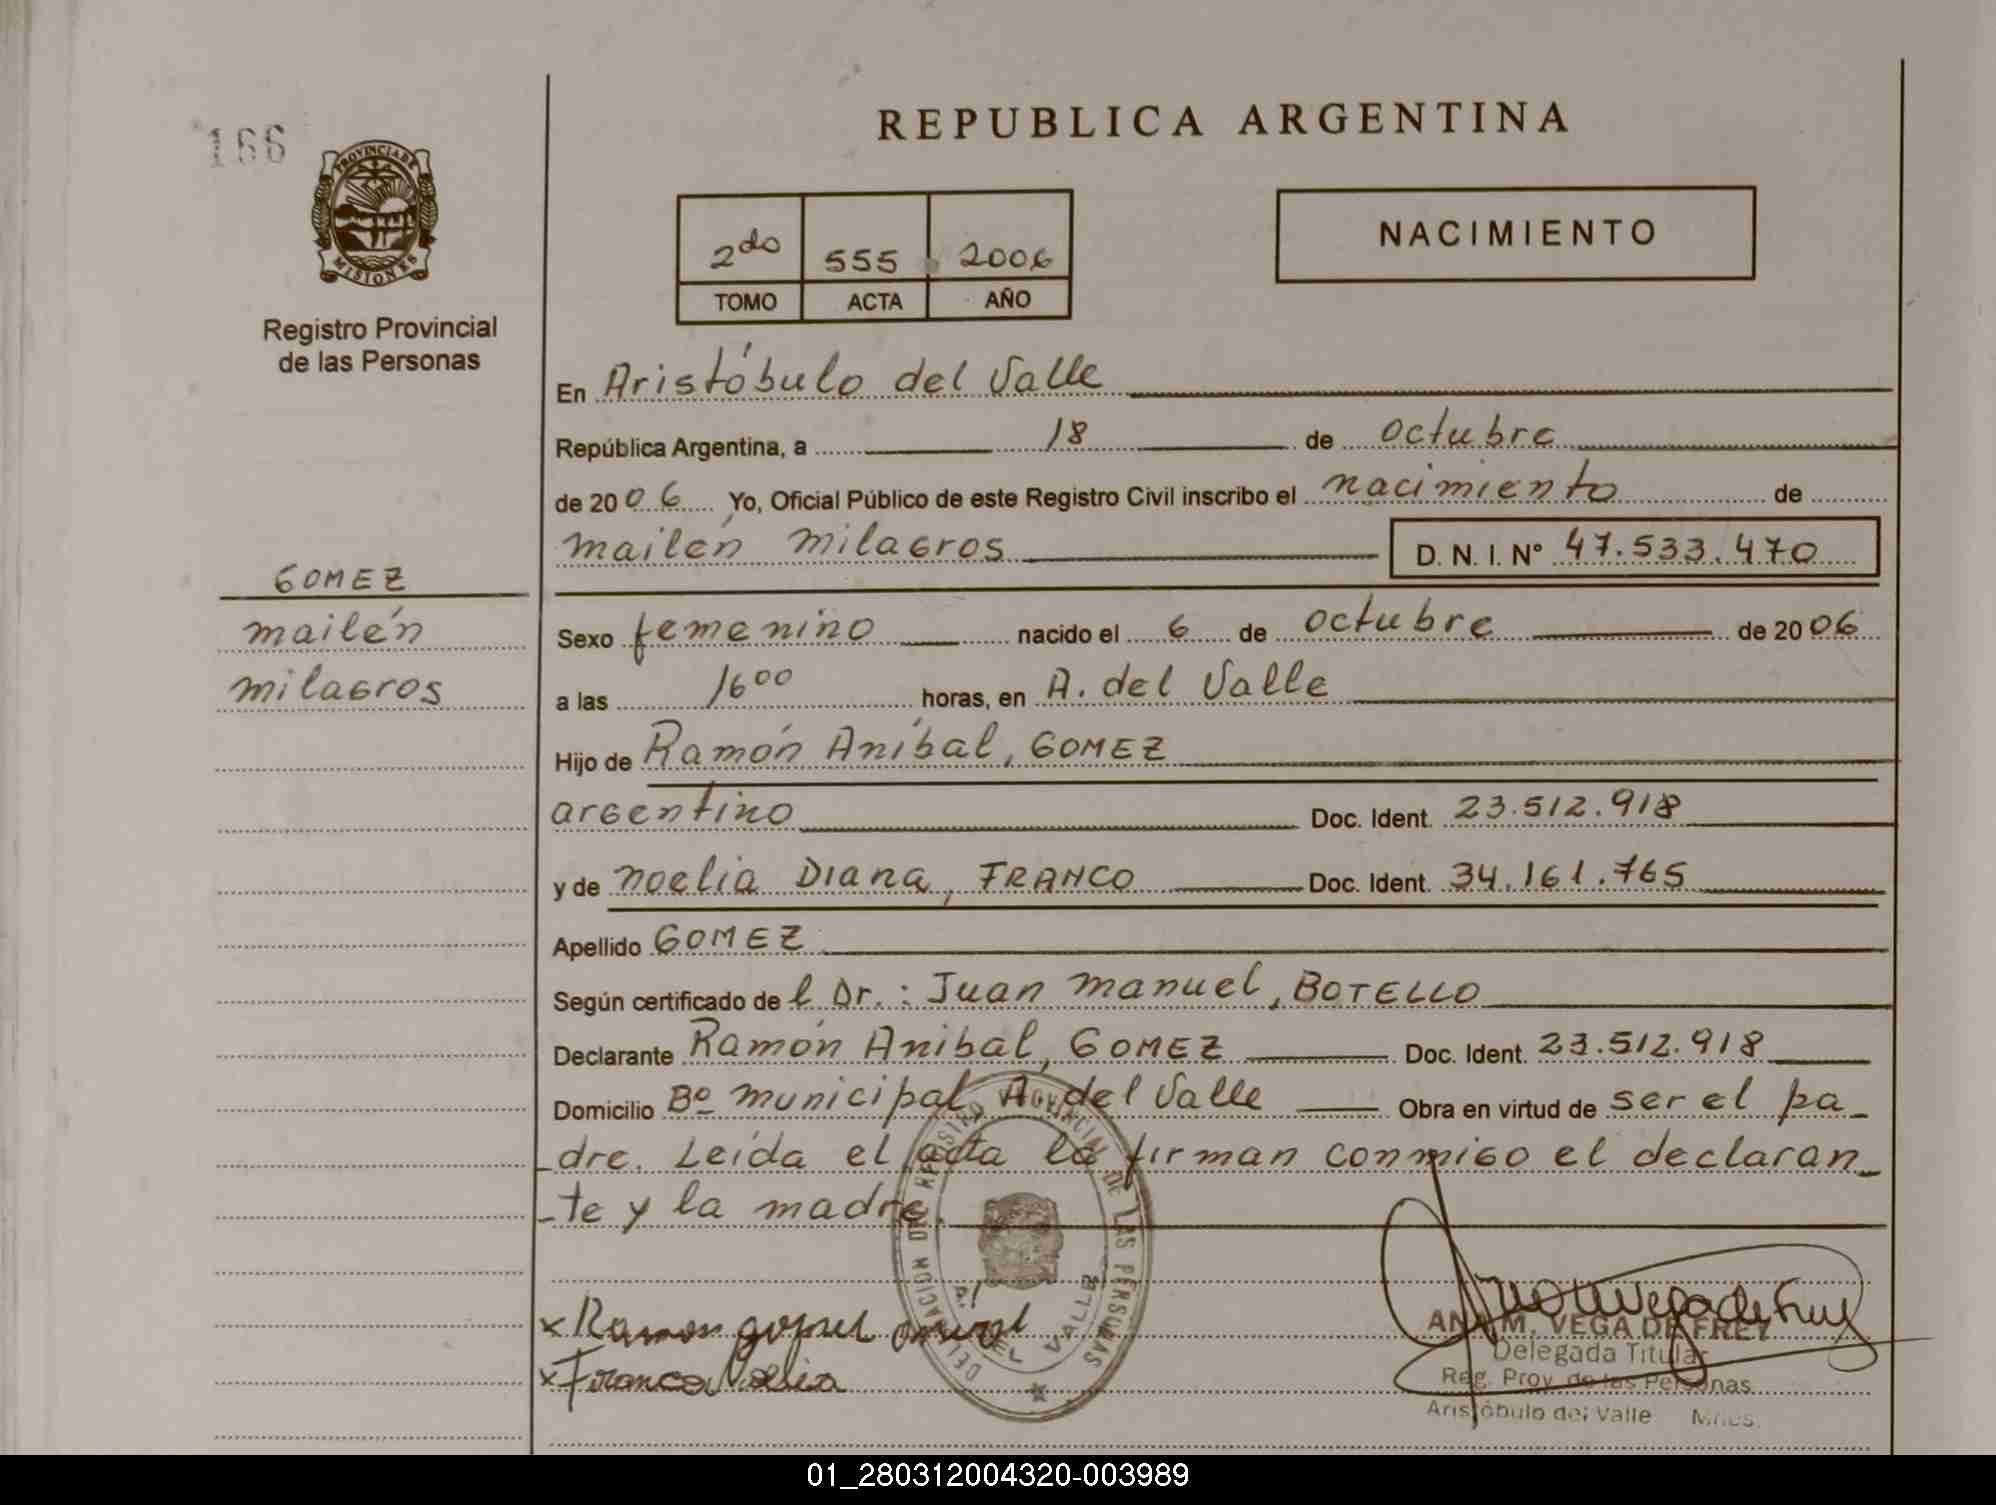 166
PROVINCIA DE
MISIONES
Registro Provincial
de las Personas
REPUBLICA ARGENTINA
2do 555 2006
TOMO ACTA AÑO
NACIMIENTO
En Aristóbulo del Valle
República Argentina, a 18 de octubre
de 2006 Yo, Oficial Público de este Registro Civil inscribo el nacimiento de
mailén milagros D. N. I. Nº 47.533.470
GOMEZ
mailén
milagros
Sexo femenino nacido el 6 de octubre de 2006
a las 16 00 horas, en A. del Valle
Hijo de Ramón Aníbal, GOMEZ
argentino Doc. Ident. 23.512.918
y de noelia Diana, FRANCO Doc. Ident. 34.161.765
Apellido GOMEZ
Según certificado de l Dr.: Juan manuel, BOTELLO
Declarante Ramón Anibal, GOMEZ Doc. Ident. 23.512.918
Domicilio Bº municipal A. del Valle Obra en virtud de ser el pa_
_dre. Leída el acta la firman conmigo el declaran_
_te y la madre.
DELEGACION DEL REGISTRO PROVINCIAL DE LAS PERSONAS
DEL VALLE
x Ramon gomez anival
x Franco Noelia
ANA M. VEGA DE FREY
Delegada Titular
Reg. Prov. de las Personas
Aristóbulo del Valle Mnes.
01_280312004320-003989